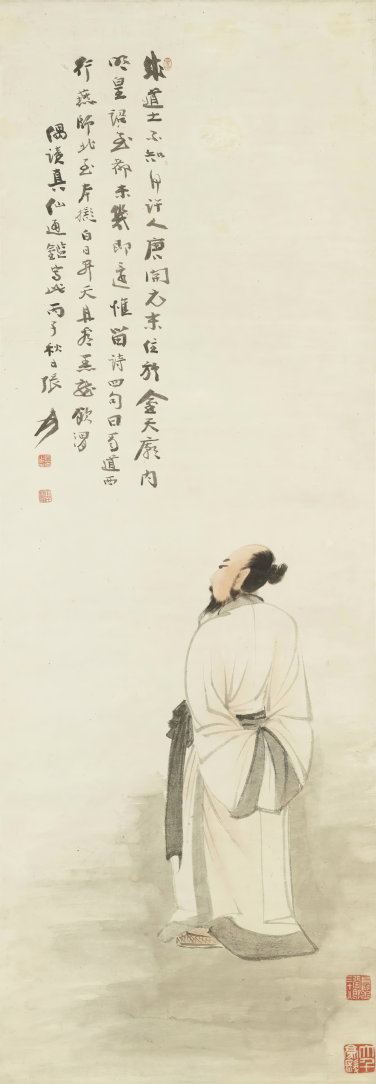 成道士不知何許人唐開元末住於金天廟內
明皇詔至都未幾即還惟留詩四句曰蜀道西
行燕師北至本擬白日昇天且看黑龍飲渭
偶讀真仙通鑑寫此丙子秋日張爰